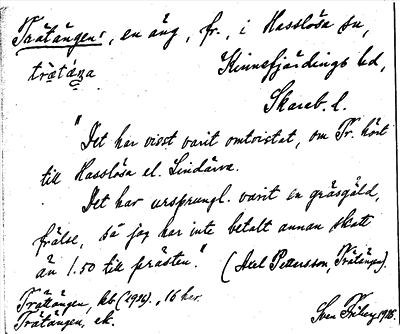 Trätängen, en äng, fr., i Hasslösa sn,
trätäŋa Kinnefjärdings hd,
Skarab. l.
"Det har visst varit omtvistat, om Tr. hört
till Hasslösa el. Lindärva.
Det har ursprungl. varit en gräsgäld,
frälse, så jag har inte betalt annan skatt
än 1.50 till prästen." (Axel Pettersson, Trätängen).
Trättängen, kb (1914), 16 har.
Trätängen, ek. Sven 1918.